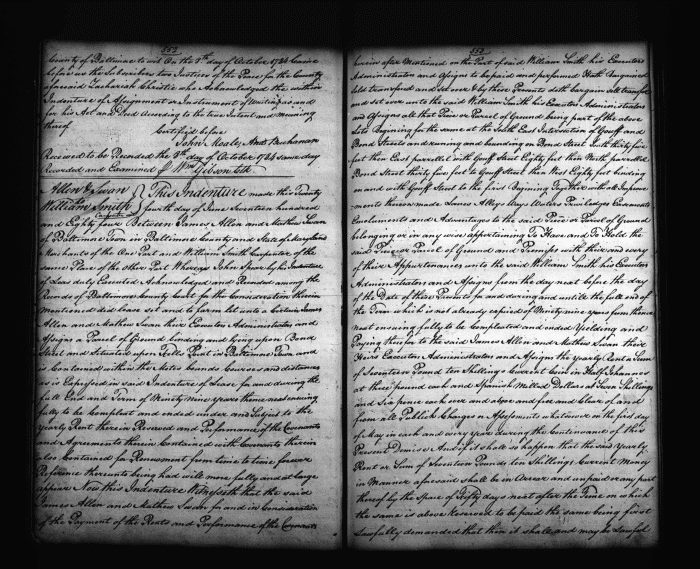 552
County of Baltimore to wit On the 8th day of October 1784 Came
before us the Subscribers two Justices of the Peace for the County
aforesaid Zachariah Christie who Acknowledged the within
Indenture of Assignment or Instrument of Writing as and
for his Act and Deed According to the true Intent and meaning
thereof
Certified before
John Moale, Andw Buchanan
Received to be Recorded the 8th day of October 1784 same day
Recorded and Examined Wm Gibson Clk
Allen & Swan
To
William Smith
Carpenter
This Indenture made this Twenty
fourth day of June Seventeen hundred
and Eighty four Between James Allen and Mathew Swan
of Baltimore Town in Baltimore County and State of Maryland
Merchants of the One Part and William Smith Carpenter of the
same Place of the other Part Whereas John Speer by the Indenture
of Lease duly Executed Acknowledged and Recorded among the
Records of Baltimore County Court for the Consideration therein
mentioned did lease set and to farm let unto a Certain James
Allen and Mathew Swan their Executors Administrators and
Assigns a Parcel of Ground binding and lying upon Bond
Street and Situated upon Fells Point in Baltimore Town and
is Contained within the Metes bounds Courses and distances
as is Expressed in said Indenture of Lease for and during the
full End and Term of Ninety Nine years thence next ensuing
fully to be Compleat and ended under and Subject to the
Yearly Rent therein Reserved and Performance of the Covenants
and Agreements therein Contained with Covenants therein
also Contained for Renewment from time to time forever
Reference thereunto being had will more fully and at large
appear Now this Indenture Witnesseth that the said
James Allen and Mathew Swan for and in Consideration
of the Payment of the Rents and Performance of the Covenants
553
herein after Mentioned on the Part of said William Smith his Executors
Administrators and Assigns to be paid and performed Hath Bargained
sold transfered and set over & by these Presents doth bargain sell transfer
and set over unto the said William Smith his Executors Administrators
and Assigns all that Piece or Parcel of Ground being part of the above
Lots Beginning for the same at the South East Intersection of Gouff and
Bond Streets and running and bounding on Bond Street South thirty five
feet then East parrellel with Gouff Street Eighty feet then North parrellel
Bond Street thirty five feet to Gouff Street then West Eighty feet binding
on and with Gouff Street to the first Begining Together with all Improve
ments thereon made Lanes Alleys Ways Waters Priviledges Easments
Emoluments and Advantages to the said Piece or Parcel of Ground
belonging or in any wise appertaining To Have and To Hold the
said Piece or Parcel of Ground and Premises with their and every
of their Appurtenances unto the said William Smith his Executors
Administrators and Assigns from the day next before the day
of the Date of these Presents for and during and untill the full end of
the Term which is not already expired of Ninety nine years from thence
next ensuing fully to be Compleated and ended Yeilding and
Paying therefor to the said James Allen and Mathew Swan their
Heirs Executors Administrators and Assigns the yearly Rent or Sum
of Seventeen Pound ten Shillings Current Coin in Half Johannes
at three pound each and Spanish Milled Dollars at Seven Shillings
and Six pence over and above and free and Clear of and
from all Publick Charges or Assessments whatsoever on the first day
of May in each and every year during the Continuance of this
Present Demise And if it shall so happen that the said Yearly
Rent or Sum of Seventeen Pounds ten Shillings Current Money
in Manner aforesaid shall be in Arrear and unpaid or any part
thereof by the Space of Fifty days next after the Time on which
the same is above Reserved to be paid the same being first
Lawfully demanded that then it shall and may be Lawful